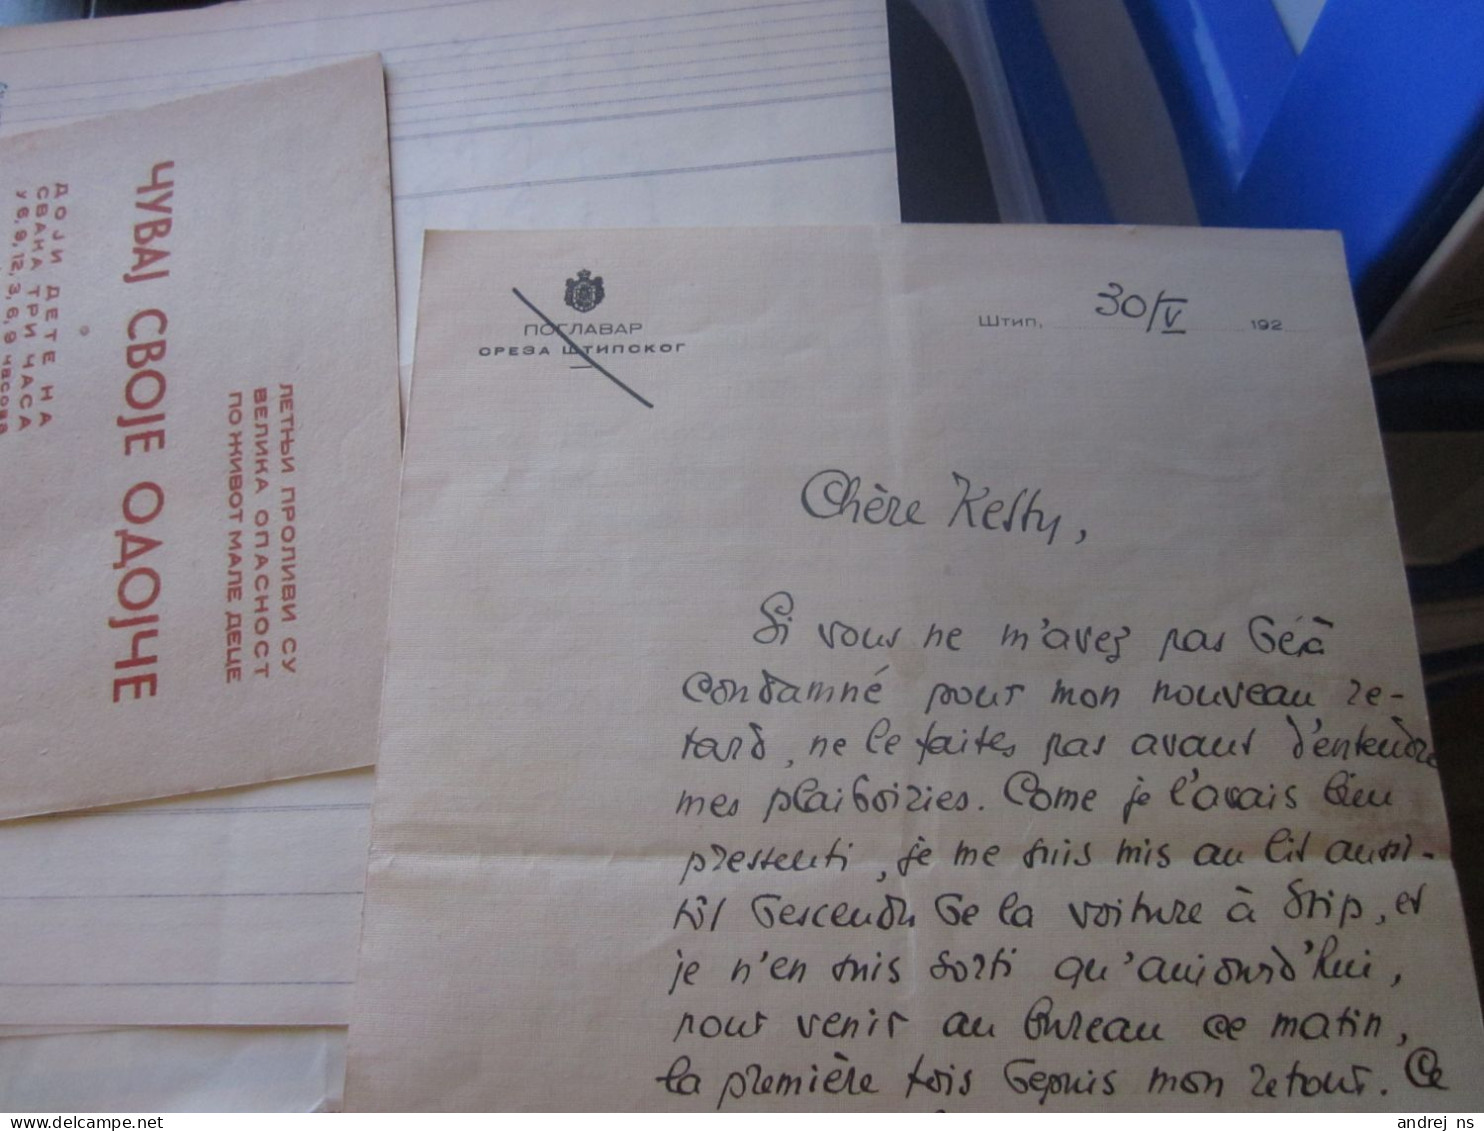 ЧУВАЈ СВОЈЕ ОДОЈЧЕ
ДОЈИ ДЕТЕ НА
СВАКА ТРИ ЧАСА
У 6, 9, 12, 3, 6, 9 часова
ЛЕТЊИ ПРОЛИВИ СУ
ВЕЛИКА ОПАСНОСТ
ПО ЖИВОТ МАЛЕ ДЕЦЕ
ПОГЛАВАР
СРЕЗА ШТИПСКОГ
Штип, 30/V 192
Chère Ketty,
Si vous ne m'avez pas déjà
condamné pour mon nouveau re-
tard, ne le faites pas avant d'entendre
mes plaidoiries. Come je l'avais bien
pressenti, je me suis mis au lit aussi-
tôt descendu de la voiture à Stip, et
je n'en suis sorti qu'aujourd'hui,
pour venir au bureau ce matin,
la première fois depuis mon retour. Ce
andrej ns